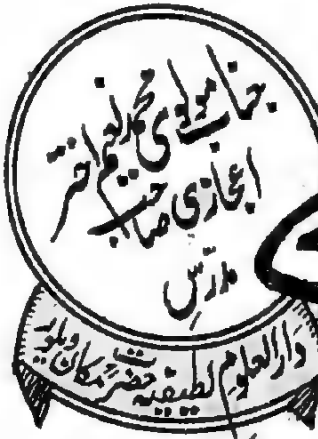 جناب مولوی محمد نعیم اختر
اعجازی صاحب
مدرّسِ
دَارالعلوم لطیفیہ حضرت مکان ویلور